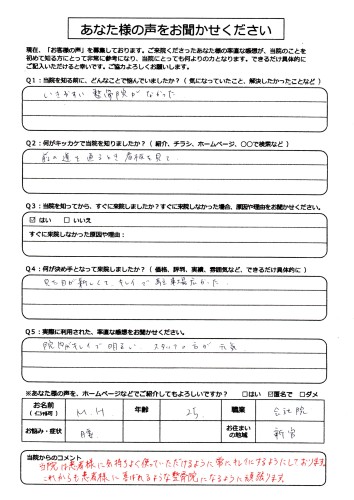 あなた様の声をお聞かせください
現在、「お客様の声」を募集しております。ご来院くださったあなた様の率直な感想が、当院のことを
初めて知る方にとって非常に参考になり、当院にとっても何よりの力となります。できるだけ具体的に
ご記入いただけると幸いです。ご協力よろしくお願いします。
Q1：当院を知る前に、どんなことで悩んでいましたか？（ 気になっていたこと、解決したかったことなど ）
いきやすい 整骨院がなかった
Q2：何がキッカケで当院を知りましたか？（ 紹介、チラシ、ホームページ、○○で検索など ）
前の道を通るとき 看板を見て
Q3：当院を知ってから、すぐに来院しましたか？すぐに来院しなかった場合、原因や理由をお聞かせください。
☑ はい ☐ いいえ
すぐに来院しなかった原因や理由：
Q4：何が決め手となって来院しましたか？（ 価格、評判、実績、雰囲気など、できるだけ具体的に ）
見た目が新しくて、キレイで 駐車場広かった
Q5：実際に利用された、率直な感想をお聞かせください。
院内がキレイで 明るい スタッフの方が 元気
※あなた様の声を、ホームページなどでご紹介してもよろしいですか？ ☐はい ☑匿名で ☐ダメ
お名前 M.H 年齢 25 職業 会社員
(イニシャル可)
お悩み・症状 腰 お住まいの地域 新宮
当院からのコメント
当院は患者様に気持ちよく使っていただけるように常にキレイにするようにしております。
これからも患者様に喜ばれるような整骨院になるように頑張ります。